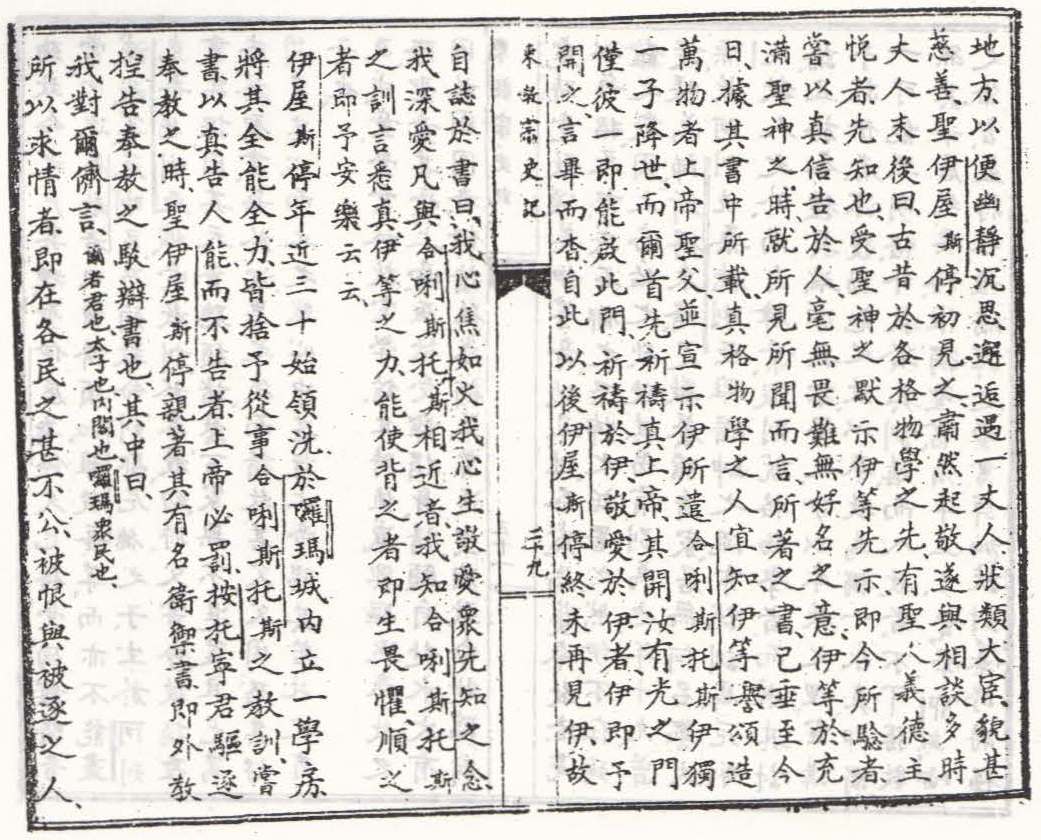 地方、以便幽靜沉思、邂逅遇一丈人、狀類大宦、貌甚
慈善、聖伊屋斯停初見之、肅然起敬、遂與相談多時
丈人末後曰、古昔於各格物學之先、有聖人義德主
悅者、先知也、受聖神之默示伊等先示、即今所驗者、
嘗以真信告於人、毫無畏難無好名之意、伊等於充
滿聖神之時、就所見所聞而言、所著之書、已垂至今
日、據其書中所載、真格物學之人宜知、伊等譽頌造
萬物者上帝聖父、並宣示伊所遣合唎斯托斯伊獨
一子降世、而爾首先祈禱真上帝、其開汝有光之門
僅彼一即能啟此門、祈禱於伊、敬愛於伊者、伊即予
開之、言畢而杳自此以後伊屋斯停終未再見伊、故
東教宗史記
二十九
自誌於書曰、我心焦如火我心生敬愛眾先知之念、
我深愛凡與合唎斯托斯相近者、我知合唎斯托斯
之訓言悉真、伊等之力、能使背之者即生畏懼、順之
者即予安樂云云、
伊屋斯停年近三十始領洗於囉瑪城內立一學房、
將其全能全力、皆捨予從事合唎斯托斯之教訓、嘗
書、以真告人、能而不告者、上帝必罰、按托寧君驅逐
奉教之時、聖伊屋斯停親著其有名衛禦書、即外教
揑告奉教之駁辯書也、其中曰、
我對爾儕言、爾者君也、太子也、內閣也、囉瑪眾民也、
所以求情者、即在各民之甚不公、被恨與被逐之人、